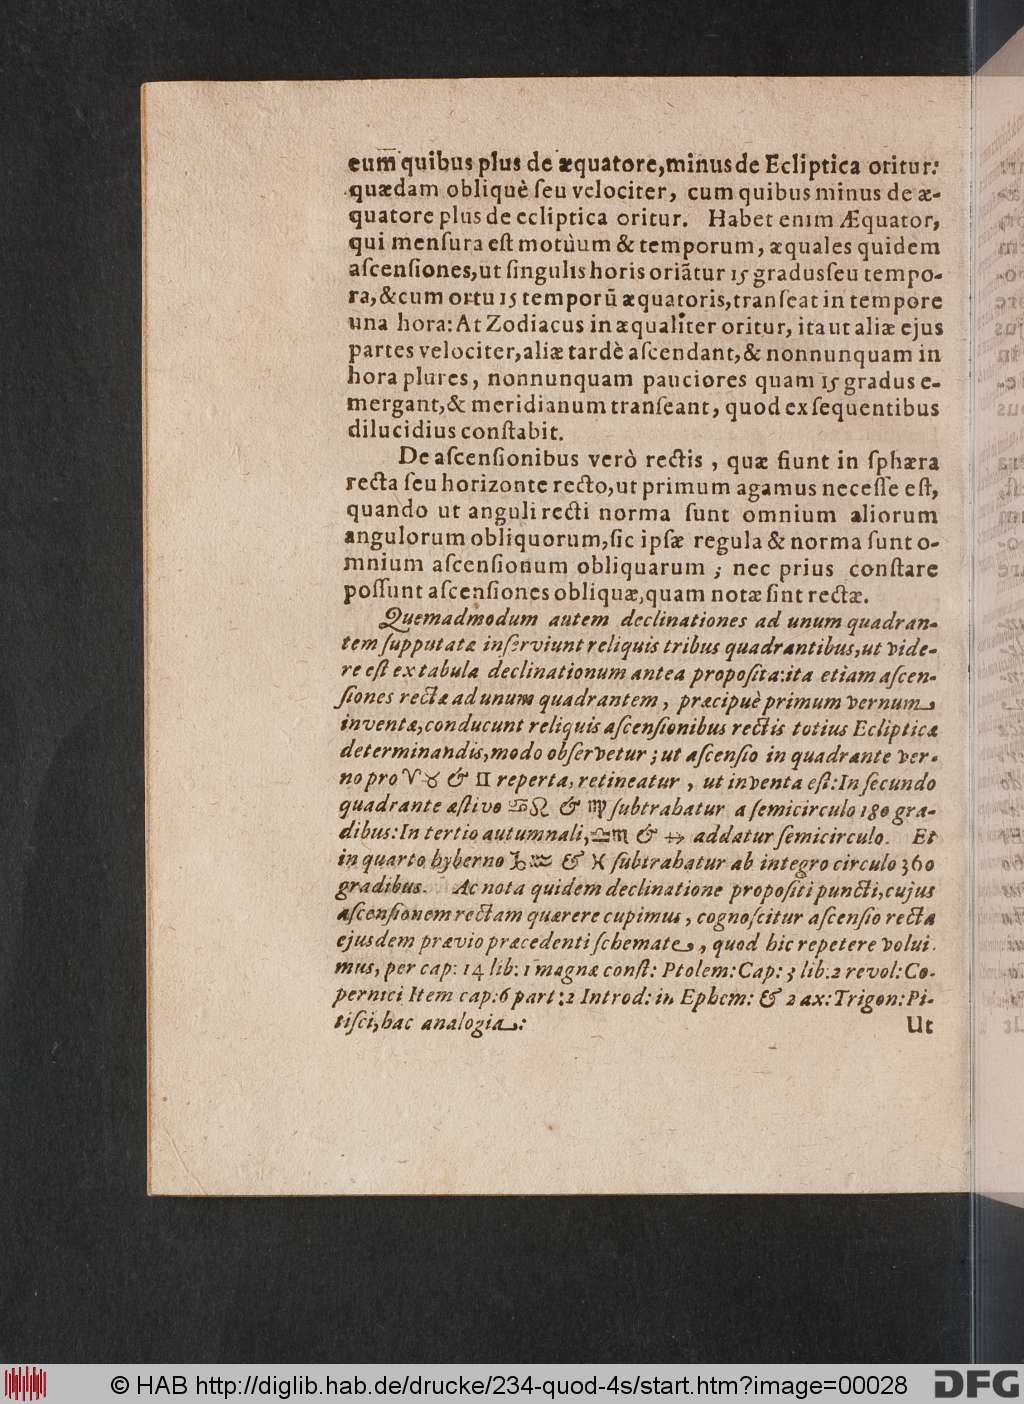 cum̅ quibus plus de æquatore, minus de Ecliptica oritur:
quædam obliquè ſeu velociter, cum quibus minus de æ-
quatore plus de ecliptica oritur. Habet enim Æquator,
qui menſura eſt motùum & temporum, æquales quidem
aſcenſiones, ut ſingulis horis oriãtur 15 gradus ſeu tempo-
ra, & cum ortu 15 temporũ æquatoris, tranſeat in tempore
una hora: At Zodiacus inæqualiter oritur, ita ut aliæ ejus
partes velociter, aliæ tardè aſcendant, & nonnunquam in
hora plures, nonnunquam pauciores quam 15 gradus e-
mergant, & meridianum tranſeant, quod ex ſequentibus
dilucidius conſtabit.
De aſcenſionibus verò rectis, quæ fiunt in ſphæra
recta ſeu horizonte recto, ut primum agamus neceſſe eſt,
quando ut anguli recti norma ſunt omnium aliorum
angulorum obliquorum, ſic ipſæ regula & norma ſunt o-
mnium aſcenſionum obliquarum; nec prius conſtare
poſſunt aſcenſiones obliquæ, quam notæ ſint rectæ.
Quemadmodum autem declinationes ad unum quadran-
tem ſupputatæ inſerviunt reliquis tribus quadrantibus, ut vide-
re eſt ex tabula declinationum antea propoſita: ita etiam aſcen-
ſiones rectæ ad unum quadrantem, præcipuè primum vernum
inventæ, conducunt reliquis aſcenſionibus rectis totius Eclipticæ
determinandis, modo obſervetur; ut aſcenſio in quadrante ver-
no pro ♈ ♉ & ♊ reperta, retineatur, ut inventa eſt: In ſecundo
quadrante æſtivo ♋ ♌ & ♍ ſubtrahatur a ſemicirculo 180 gra-
dibus: In tertio autumnali, ♎ ♏ & ♐ addatur ſemicirculo. Et
in quarto hyberno ♑ ♒ & ♓ ſubtrahatur ab integro circulo 360
gradibus. Ac nota quidem declinatione propoſiti puncti, cujus
aſcenſionem rectam quærere cupimus, cognoſcitur aſcenſio recta
ejusdem prævio præcedenti ſchemate, quod hic repetere volui.
mus, per cap: 14 lib: 1 magnæ conſt: Ptolem: Cap: 3 lib: 2 revol: Co-
pernici Item cap: 6 part: 2 Introd: in Ephem: & 2 ax: Trigon: Pi-
tiſci, hac analogia:
Ut
© HAB http://diglib.hab.de/drucke/234-quod-4s/start.htm?image=00028
DFG